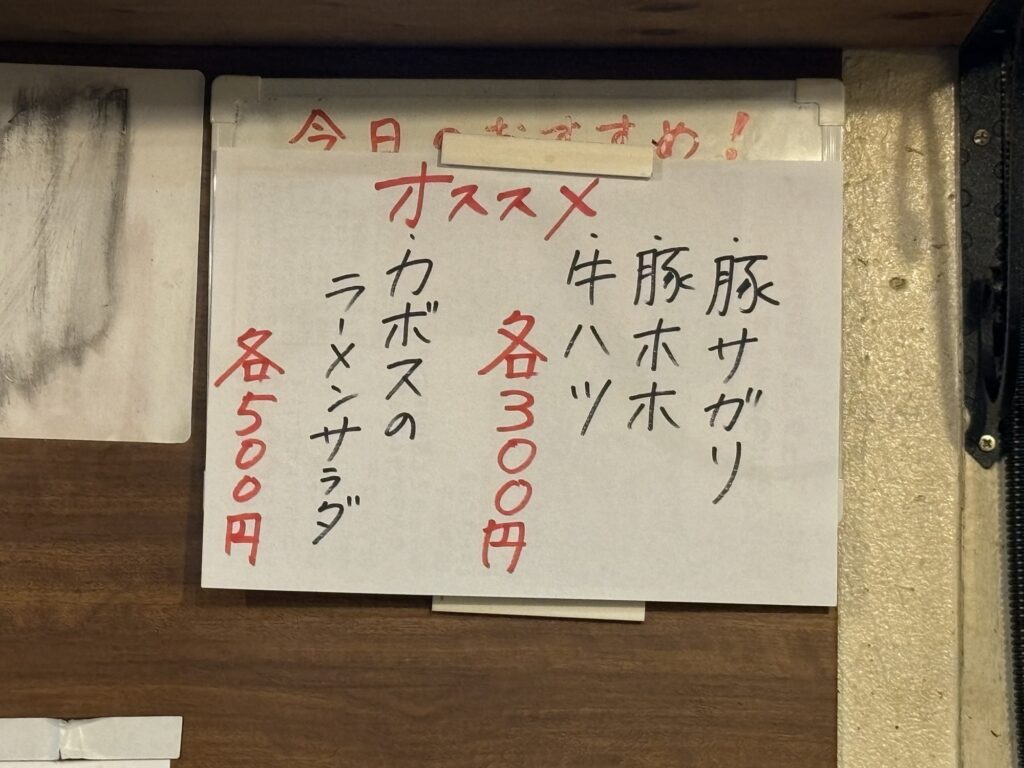 今日のおすすめ!
オススメ
・豚サガリ
・豚ホホ
・牛ハツ
各300円
・カボスの
ラーメンサラダ
各500円